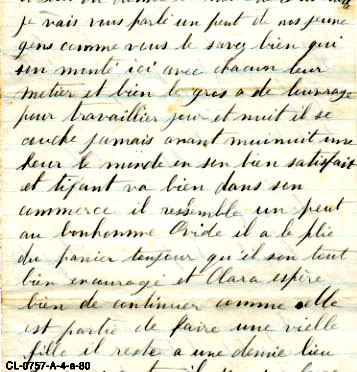 je vais vous parlé un peut de nos jeune
gens comme vous le savez bien qui
son monté ici avec chacun leur
metier et bien le gros a de l'ouvrage
pour travaillier jour et nuit il se
couche jamais avant muinuit une
heur le monde en son bien satisfait
et tifant va bien dans son
commerce il ressemble un peut
au bonhomme Ovide il a le plie
du panier toujour qu'il son tout
bien encouragé et Clara espère
bien de continuer comme elle
est partie de faire une vielle
fille il reste a une demie lieu
CL-0757-A-4-a-80